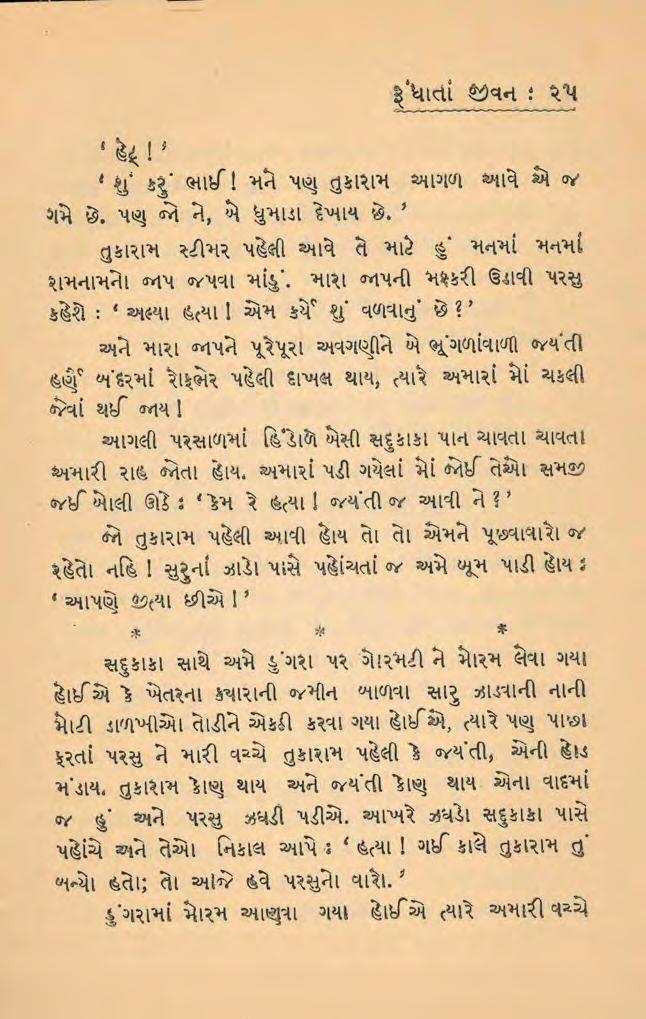 રૂંધાતાં જીવન : ૨૫
‘ હેટ્ ! ’
‘ શું કરું ભાઈ ! મને પણ તુકારામ આગળ આવે એ જ
ગમે છે. પણ જો ને, બે ધુમાડા દેખાય છે. ’
તુકારામ સ્ટીમર પહેલી આવે તે માટે હું મનમાં મનમાં
રામનામનો જાપ જપવા માંડું. મારા જાપની મશ્કરી ઉડાવી પરસુ
કહેશે : ‘ અલ્યા હત્યા ! એમ કર્યે શું વળવાનું છે ? ’
અને મારા જાપને પૂરેપૂરા અવગણીને બે ભૂંગળાંવાળી જયંતી
હર્ણૈ બંદરમાં રોફભેર પહેલી દાખલ થાય, ત્યારે અમારાં મોં ચકલી
જેવાં થઈ જાય !
આગલી પરસાળમાં હિંડોળે બેસી સદુકાકા પાન ચાવતા ચાવતા
અમારી રાહ જોતા હોય. અમારાં પડી ગયેલાં મોં જોઈ તેઓ સમજી
જઈ બોલી ઊઠે : ‘ કેમ રે હત્યા ! જયંતી જ આવી ને ? ’
જો તુકારામ પહેલી આવી હોય તો તો એમને પૂછવાવારો જ
રહેતો નહિ ! સુરુનાં ઝાડો પાસે પહોંચતાં જ અમે બૂમ પાડી હોય :
‘ આપણે જીત્યા છીએ ! ’
* * *
સદુકાકા સાથે અમે ડુંગરા પર ગોરમટી ને મોરમ લેવા ગયા
હોઈએ કે ખેતરના ક્યારાની જમીન બાળવા સારુ ઝાડવાની નાની
મોટી ડાળખીઓ તોડીને એકઠી કરવા ગયા હોઈએ, ત્યારે પણ પાછા
ફરતાં પરસુ ને મારી વચ્ચે તુકારામ પહેલી કે જયંતી, એની હોડ
મંડાય. તુકારામ કોણ થાય અને જયંતી કોણ થાય એના વાદમાં
જ હું અને પરસુ ઝઘડી પડીએ. આખરે ઝઘડો સદુકાકા પાસે
પહોંચે અને તેઓ નિકાલ આપે : ‘ હત્યા ! ગઈ કાલે તુકારામ તું
બન્યો હતો; તો આજે હવે પરસુનો વારો. ’
ડુંગરામાં મોરમ આણવા ગયા હોઈએ ત્યારે અમારી વચ્ચે